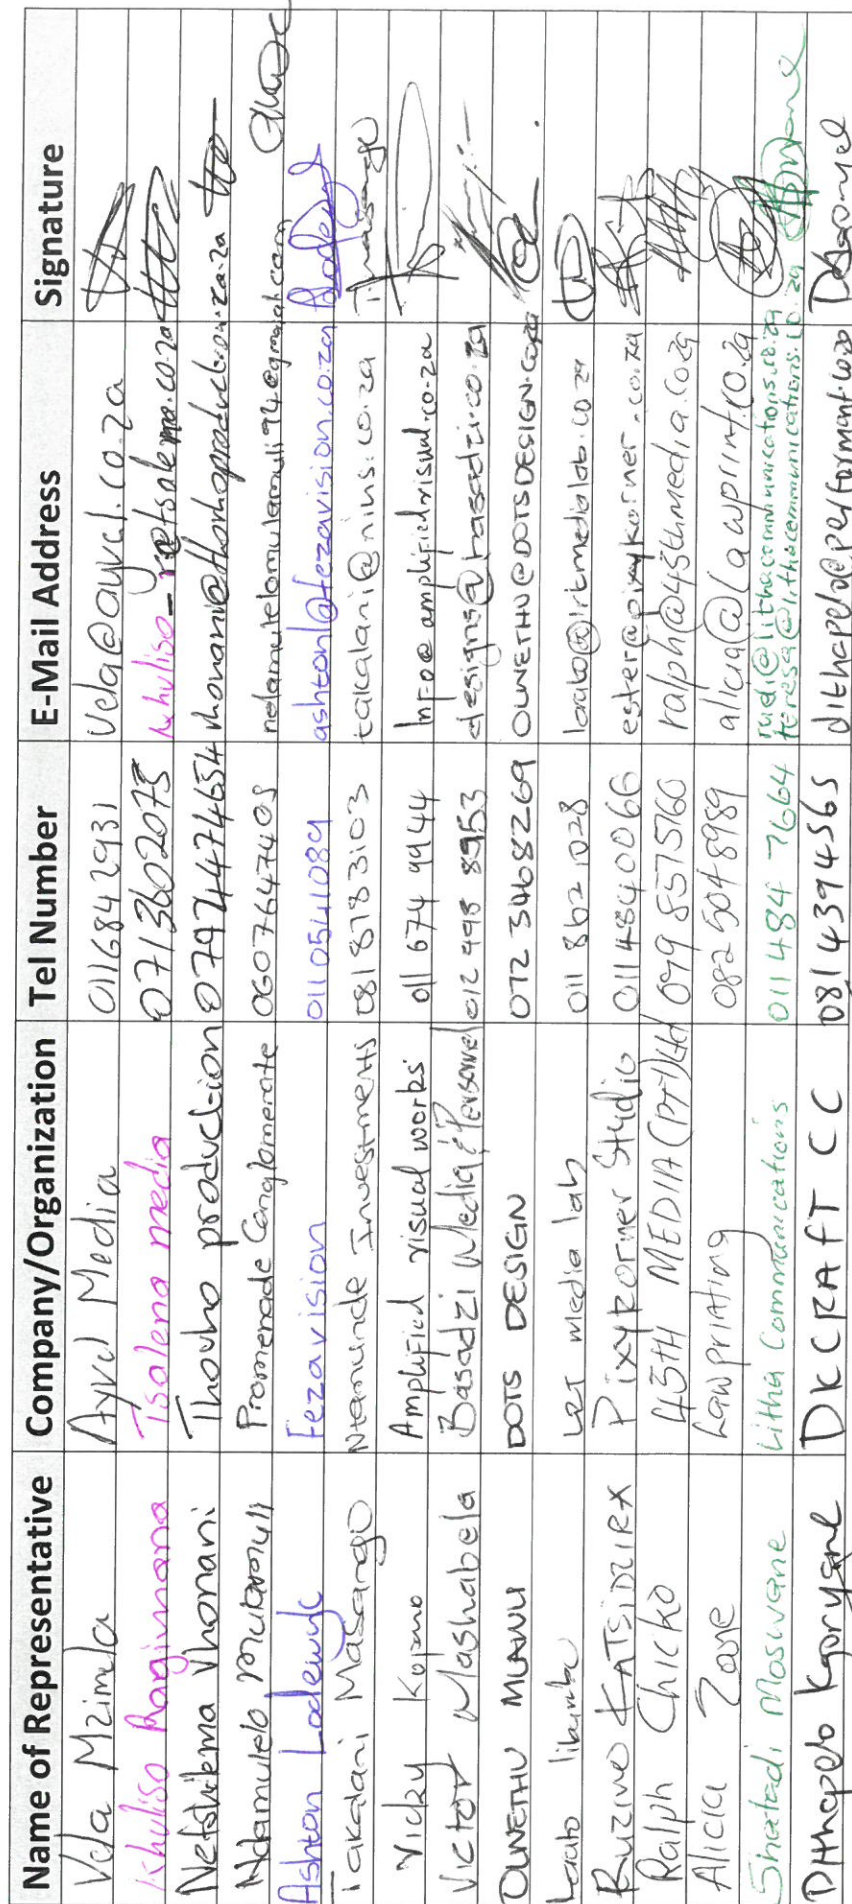 Name of Representative Company/Organization Tel Number E-Mail Address Signature
Vela Mzimela Ayvel Media 0116842931 vela@ayvel.co.za
Khuliso Ragimana Tsalena media 0713602075
Vhonani Thovho production 0794474654
Ndamulelo Mulamuli Promenade Conglomerate 0607647403 ndamulelomulamuli94@gmail.com
Ashton Lodewyk Fezavision 0110541089 ashton@fezavision.co.za
Takalani Masango Ntamunde Investments 081 878 3103 takalani@nins.co.za
Vicky Kopano Amplified visual works 011 674 9944 info@amplifiedvisual.co.za
Victor Mashabela Basadzi Media & Personnel 012 998 8953 designs@basadzi.co.za
OLWETHU MLANLI DOTS DESIGN 072 3468269 OLWETHU@DOTSDESIGN.co.za
Lerato media lab 011 862 1028
Ruzivo KATSIDZIRA Pixykorner Studio 0114840066 ester@pixykorner.co.za
Ralph Chicko 45TH MEDIA (PTY) Ltd 079 8575760 ralph@45thmedia.co.za
Alicia Zone Lawprinting 082 504 8989 alicia@lawprint.co.za
Shatadi Moswane Litha Communications 011 484 7664 rudi@lithacommunications.co.za
teresa@lithacommunications.co.za
Dithapelo Kgonyane DK CRAFT CC 0814394565